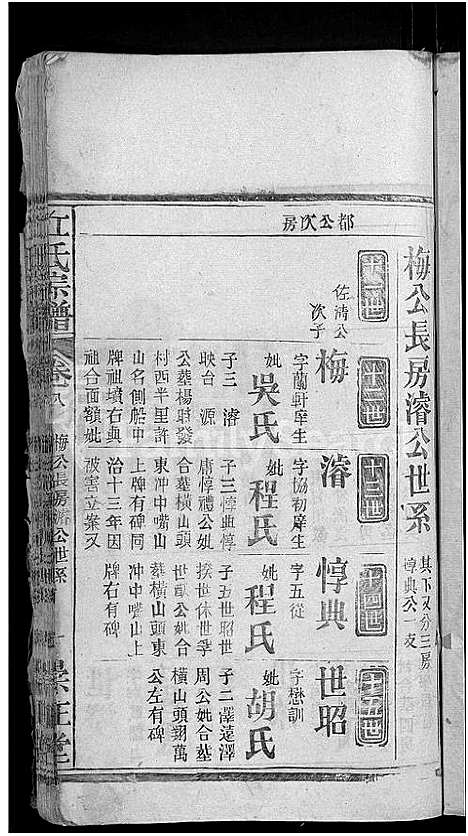 梅公長房濬公世系
其下又分三房
惇典公一支
都公次房
十一世
十二世
十三世
十四世
十五世
佐清公
次子
梅
字蘭軒庠生
妣吳氏
子三 濬
映台 源
公葬楊聀發
村西半里許
山名創船中
牌祖墳右典
祖合面額妣
濬
字協初庠生
妣程氏
子三惇典惇
庸惇禮公妣
合墓橫山頭
東冲中嘴山
上牌有碑同
治十三年因
被害立案又
惇典
字五從
妣程氏
子五世昭世
揆世休世孚
世猷公妣合
葬橫山頭東
冲中嘴山上
牌右有碑
世昭
字懋訓
妣胡氏
子二澤遠澤
周公妣合墓
橫山頭翔萬
公左有碑
氏宗譜
卷八
梅公長房濬公世系
一